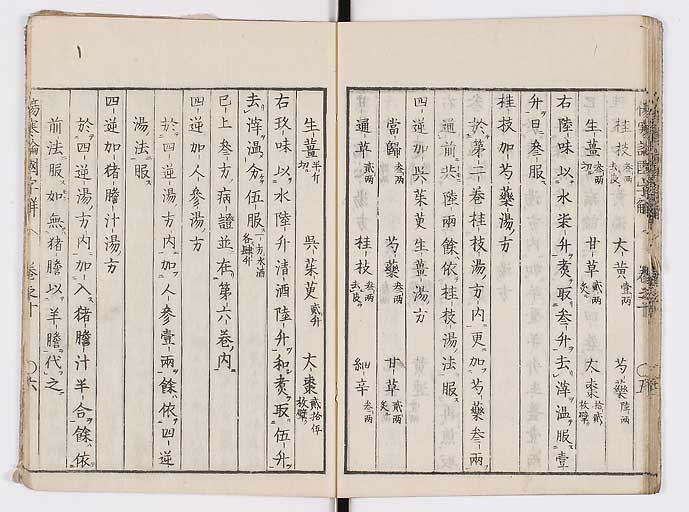 桂枝 叁兩去皮 大黃 壹兩 芍藥 陸兩
生薑 叁兩切 甘草 貳兩炙 大棗 拾貳枚擘
右陸味以水柒升煑取叁升去滓溫服壹
升日叁服
桂枝加芍藥湯方
於第二卷桂枝湯方內更加芍藥叁兩
通前共陸兩餘依桂枝湯法服
四逆加吳茱萸生薑湯方
當歸 叁兩 芍藥 叁兩 甘草 貳兩炙
通草 貳兩 桂枝 叁兩去皮 細辛 叁兩
生薑 半斤切 吳茱萸 貳升 大棗 貳拾伍枚擘
右玖味以水陸升清酒陸升和煑取伍升
去滓溫分伍服 一方水酒各肆升
已上叁方病證並在第六卷內
四逆加人參湯方
於四逆湯方內加人參壹兩餘依四逆
湯法服
四逆加猪膽汁湯方
於四逆湯方內加入猪膽汁半合餘依
前法服如無猪膽以羊膽代之
傷寒論國字解 卷之十 六